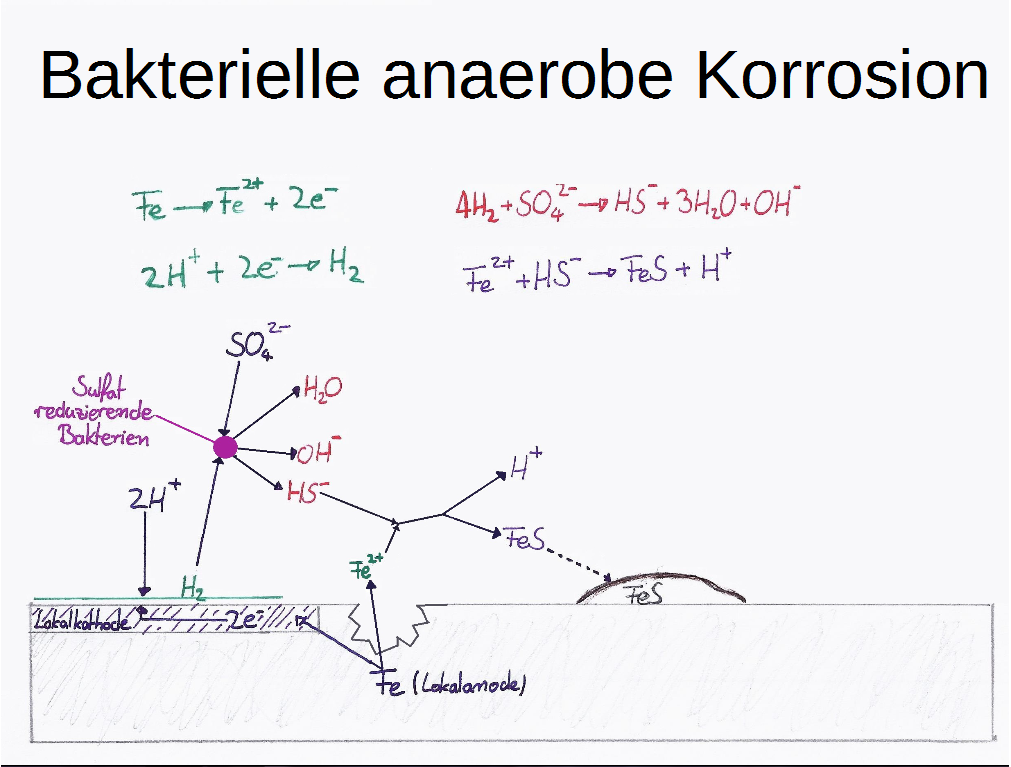 Bakterielle anaerobe Korrosion
Fe → Fe²⁺ + 2e⁻
4H₂ + SO₄²⁻ → HS⁻ + 3H₂O + OH⁻
2H⁺ + 2e⁻ → H₂
Fe²⁺ + HS⁻ → FeS + H⁺
SO₄²⁻
Sulfat
reduzierende
Bakterien
H₂O
OH⁻
HS⁻
2H⁺
H⁺
FeS
Fe²⁺
H₂
FeS
Lokalkathode
2e⁻
Fe (Lokalanode)